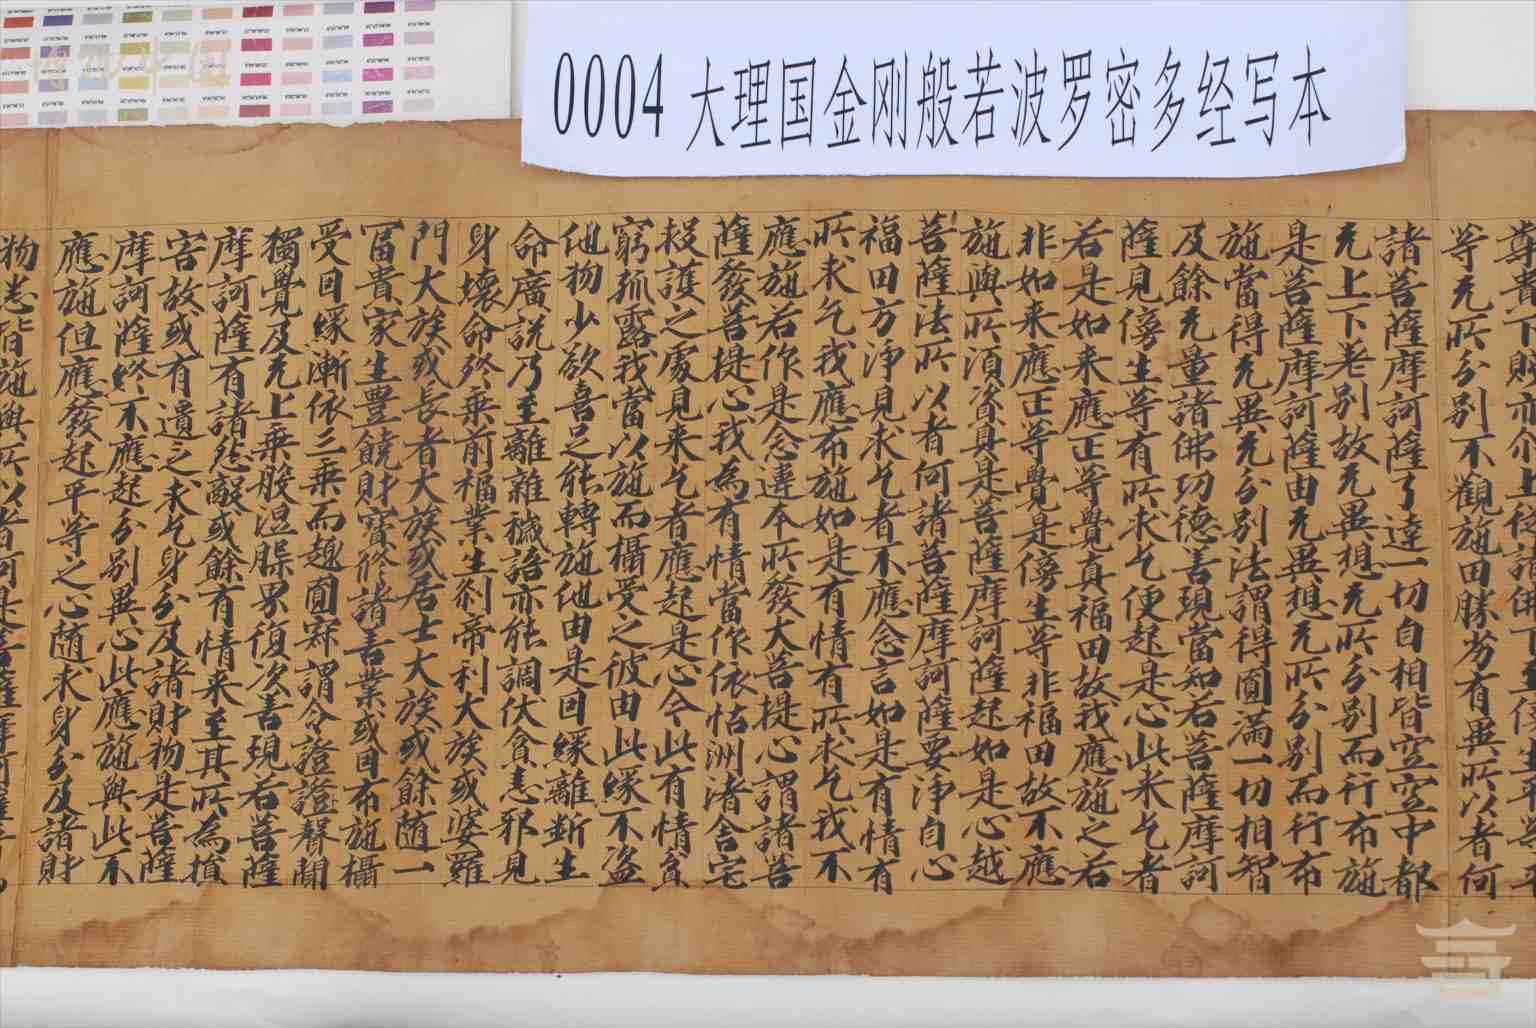 0004 大理国金刚般若波罗密多经写本
尊貴下賤亦尒上從諸佛下至傍生平等平
等无所分別不觀施田勝劣有異所以者何
諸菩薩摩訶薩了達一切自相皆空空中都
无上下差別故无異想无所分別而行布施
是菩薩摩訶薩由无異想无所分別而行布
施當得无異无分別法謂得圓滿一切相智
及餘无量諸佛功德善現當知若菩薩摩訶
薩見傍生等有所求乞便起是心此来乞者
若是如来應正等覺真福田故我應施之若
非如来應正等覺是傍生等非福田故不應
施與所湏資具是菩薩摩訶薩起如是心越
菩薩法所以者何諸菩薩摩訶薩要淨自心
福田方淨見求乞者不應念言如是有情有
所求乞我應布施如是有情有所求乞我不
應施若作是念違本所發大菩提心謂諸菩
薩發菩提心我為有情當作依怙洲渚舍宅
投護之處見来乞者應起是心今此有情貧
窮孤露我當以施而攝受之彼由此緣不盗
他物少欲喜足能轉施他由是因緣離斷生
命廣說乃至離雜穢語亦能調伏貪恚邪見
身壞命終乗前福業生剎帝利大族或婆羅
門大族或長者大族或居士大族或餘随一
冨貴家生豐饒財寳修諸善業或因布施攝
受因緣漸依三乗而趣圓寂謂令證證聲聞
獨覺及无上乗般涅槃界復次善現若菩薩
摩訶薩有諸怨敵或餘有情来至其所為損
害故或有遺乏求乞身分及諸財物是菩薩
摩訶薩終不應起分別異心此應施與此不
應施但應發起平等之心随求身分及諸財
物悉皆施與所以者何是菩薩摩訶薩